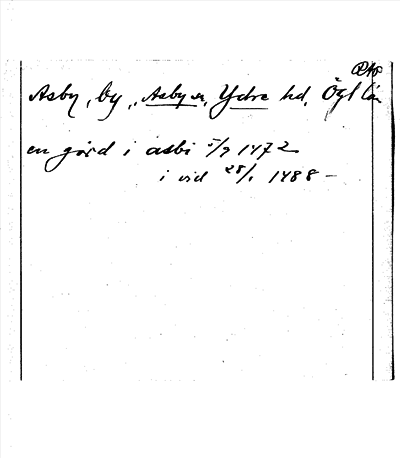 Asby, by, Asby sn, Ydre hd, Ögl län
en gård i asbi 5/7 1472
i vid 28/1 1488 –